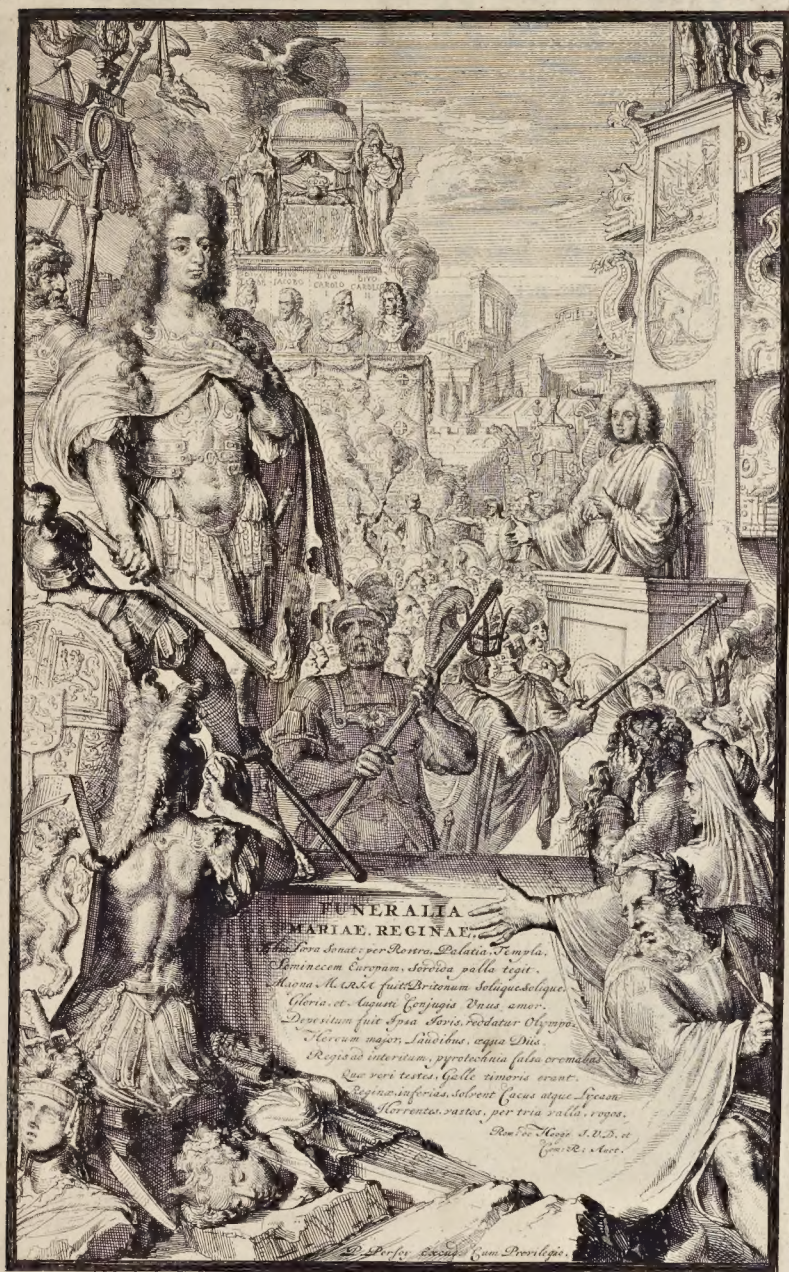 JACOBO
CAROLO
DIVO
CAROLO
II
FUNERALIA
MARIAE, REGINAE.
Sonat: per Rostra, Palatia, Templa,
Seminecem Europam, sordida palla tegit.
Magna MARIA fuit! Britonum Soliique Solique.
Gloria, et Augusti Conjugis Unus amor.
Depositum fuit Ipsa Jovis, reddatur Olympo.
Heroum major, Laudibus, æqua Diis.
Regis ad interitum, pyrotechnia falsa cremabas
Quæ veri testes, Galle timoris erant.
Reginæ inferias, solvent Cacus atque Lycaon
Horrentes, vastos, per tria valla, rogos.
Rom: de Hooge J.V.D. et
Com: R: Auct.
P. Persoy excud. Cum Privilegio.